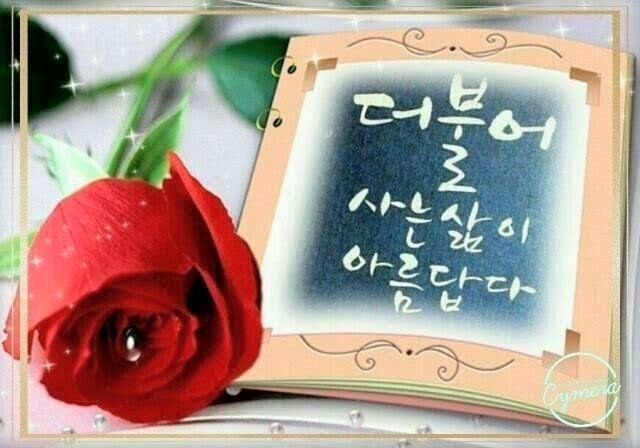 더불어
사는 삶이
아름답다
Cymera